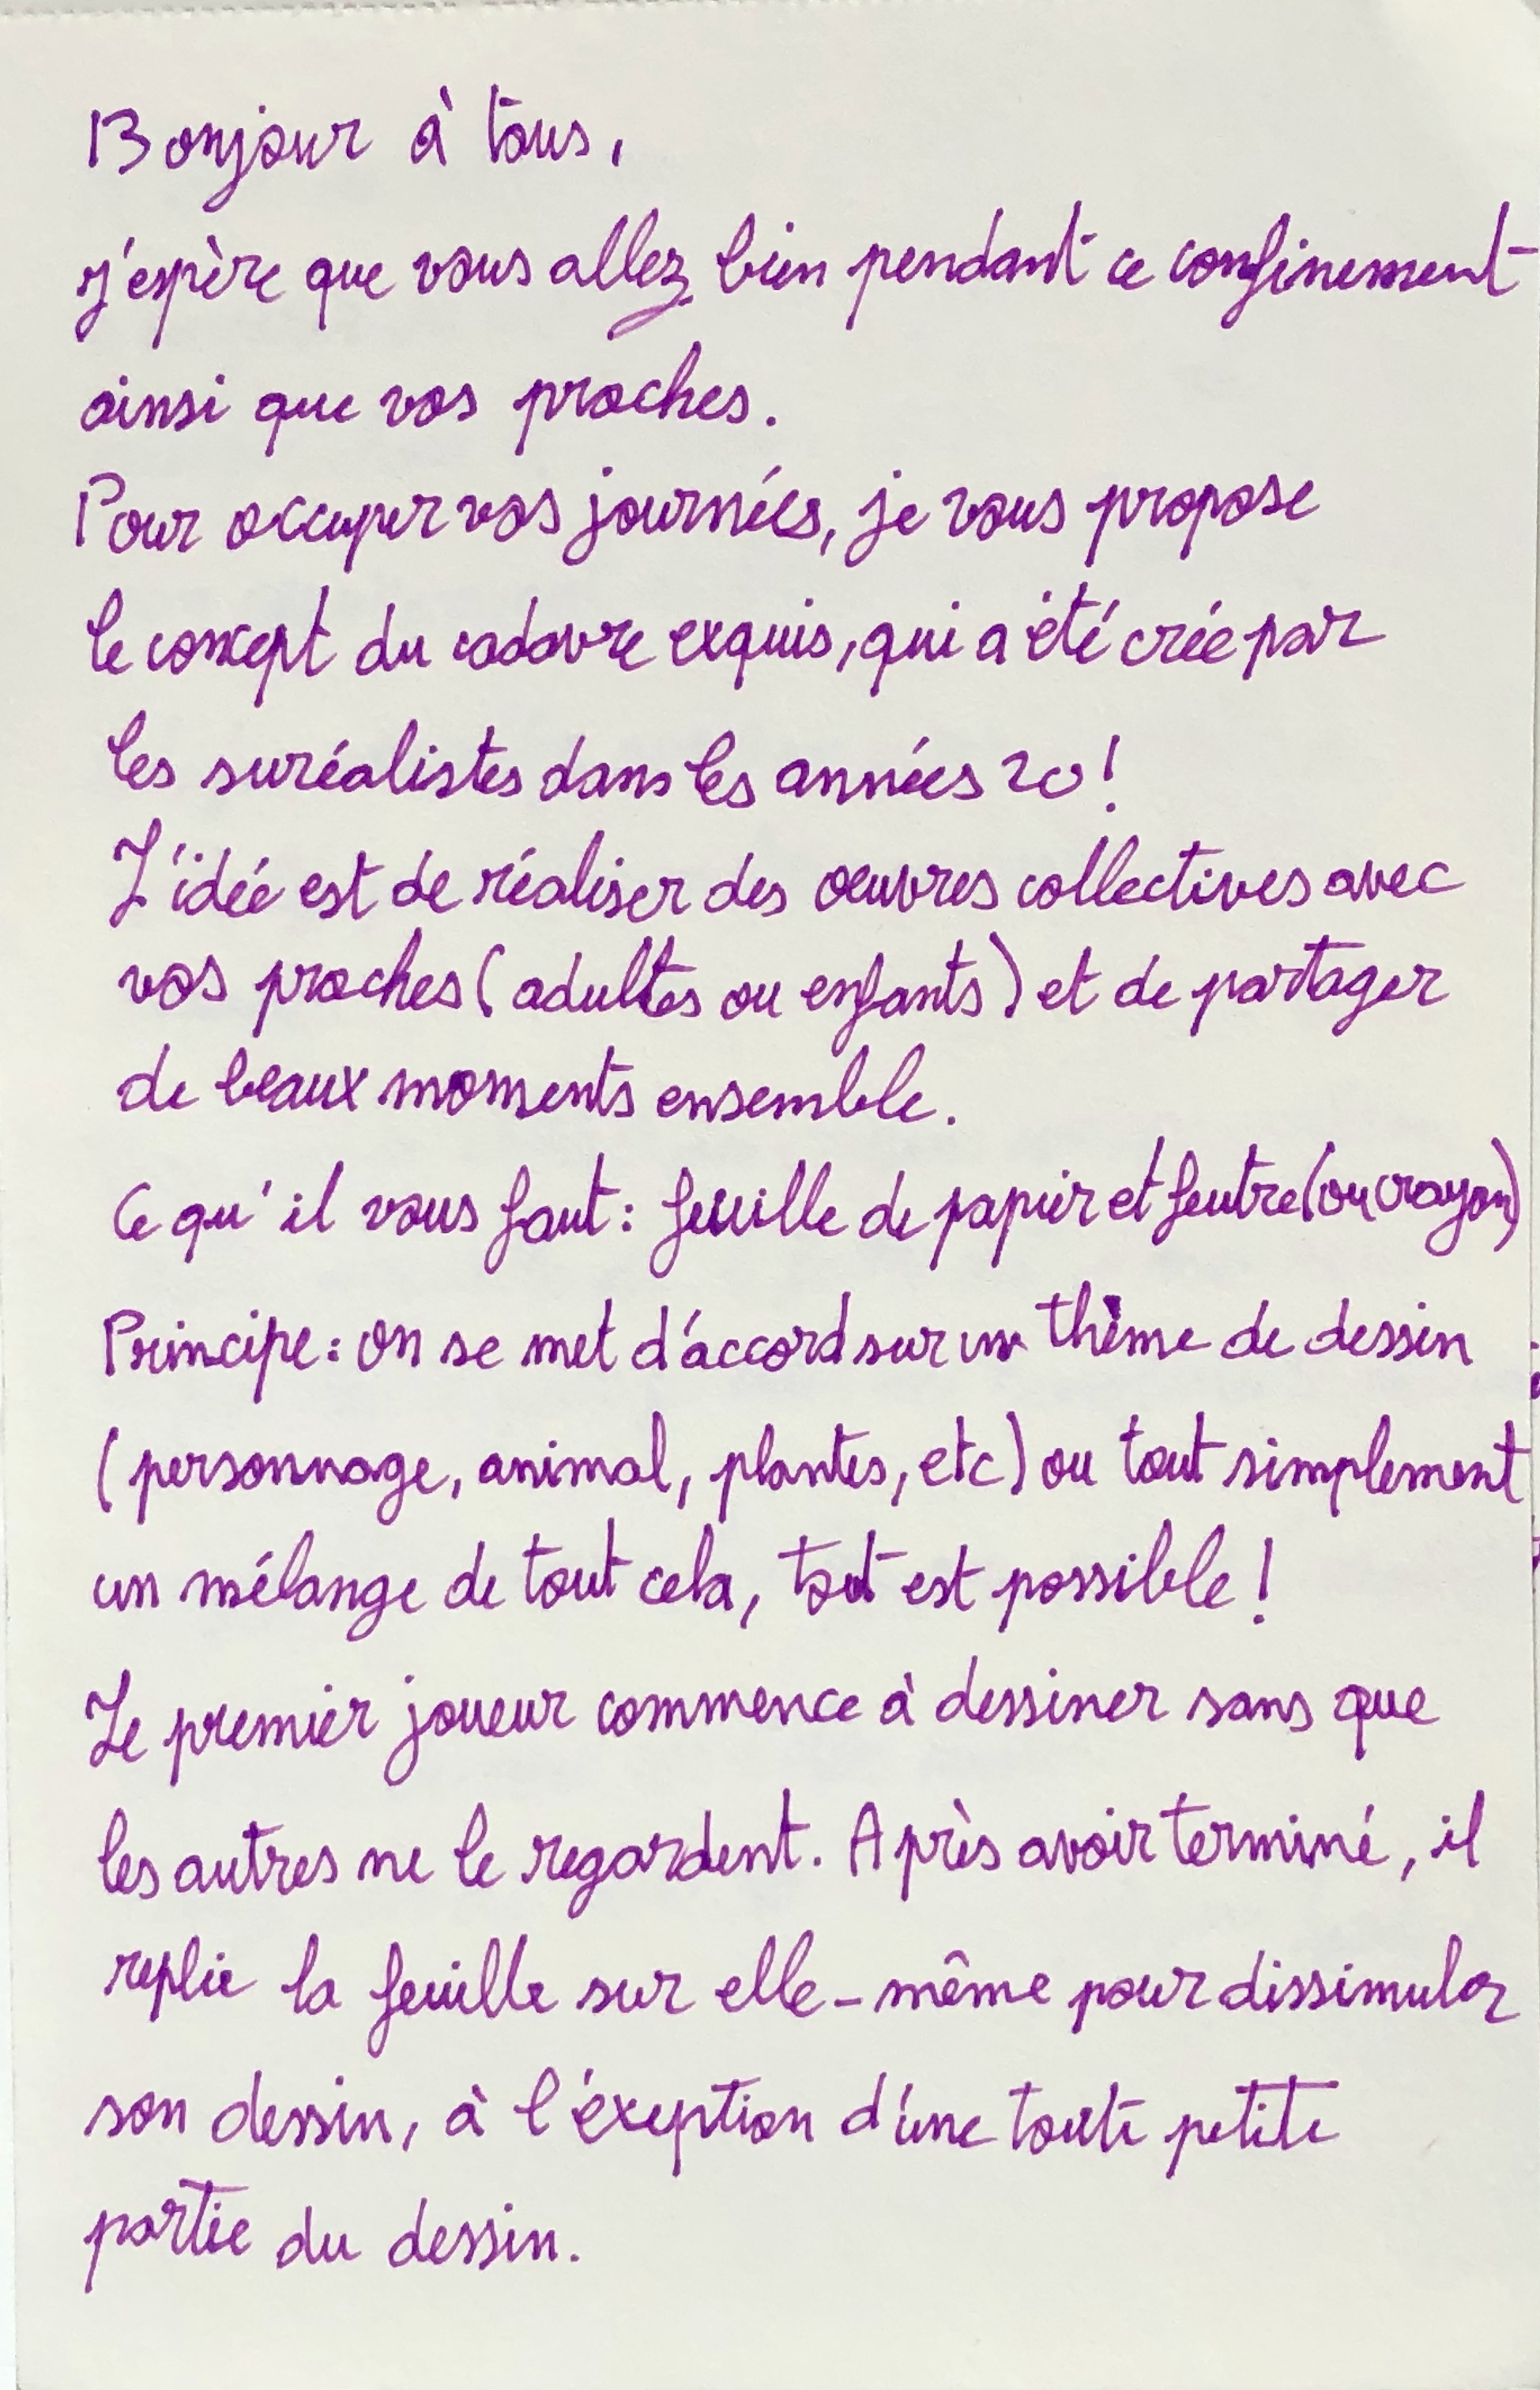 Bonjour à tous,
j'espère que vous allez bien pendant ce confinement
ainsi que vos proches.
Pour occuper vos journées, je vous propose
le concept du cadavre exquis, qui a été créé par
les suréalistes dans les années 20!
L'idée est de réaliser des oeuvres collectives avec
vos proches (adultes ou enfants) et de partager
de beaux moments ensemble.
Ce qu'il vous faut: feuille de papier et feutre (ou crayon)
Principe: On se met d'accord sur un thème de dessin
(personnage, animal, plantes, etc) ou tout simplement
un mélange de tout cela, tout est possible!
Le premier joueur commence à dessiner sans que
les autres ne le regardent. Après avoir terminé, il
replie la feuille sur elle-même pour dissimuler
son dessin, à l'éxeption d'une toute petite
partie du dessin.